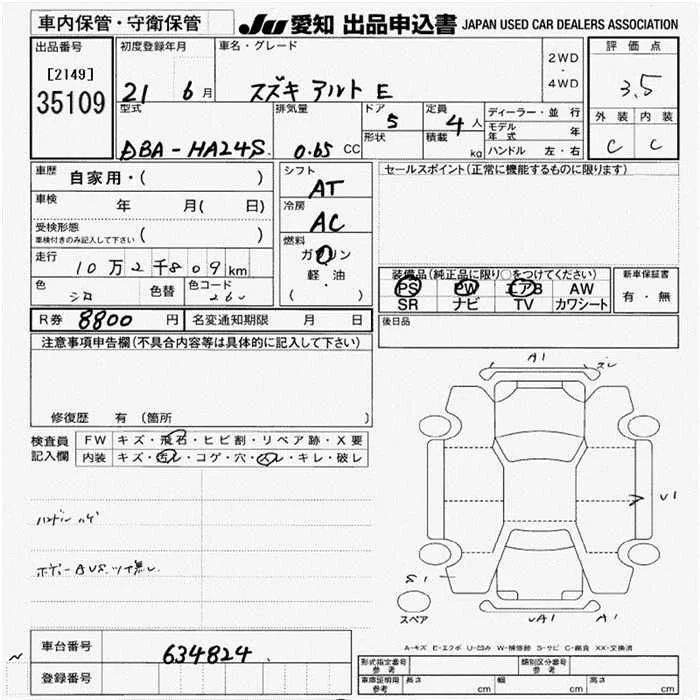 車内保管・守衛保管 JU 愛知 出品申込書 JAPAN USED CAR DEALERS ASSOCIATION
出品番号 初度登録年月 車名・グレード 2WD・4WD 評価点
[2149] 35109 21 6月 スズキ アルト E 3.5
型式 排気量 ドア 5 定員 4人 ディーラー・並行 外装 内装
DBA-HA24S 0.65 CC 形状 積載 kg モデル年式 年 C C
ハンドル 左・右
車歴 自家用・( ) シフト AT セールスポイント(正常に機能するものに限ります)
車検 年 月( 日) 冷房 AC
受検形態 車検付きのみ記入して下さい ( ) 燃料 ガソリン
走行 10万2千809km 軽・油 装備品(純正品に限り○をつけてください) 新車保証書
色 シロ 色替 色コード 26U ( ) PS PW エアB AW 有・無
SR ナビ TV カワシート
R券 8800 円 名変通知期限 月 日 後日品
注意事項申告欄(不具合内容等は具体的に記入して下さい)
A1 ズレ
修復歴 有 (箇所
検査員記入欄 FW キズ・飛石・ヒビ割・リペア跡・X要
内装 キズ・汚レ・コゲ・穴・スレ・キレ・破レ
U1
ハンドル ハゲ
ボデー AUS.ツヤ無し
S1
スペア UA1 A1
A-キズ E-エクボ U-凹み W-補修跡 S-サビ C-腐食 XX-交換済
車台番号 634824
登録番号
型式指定番号 参考 類別区分番号 参考
車庫証明用 参考 長さ cm 幅 cm 高さ cm